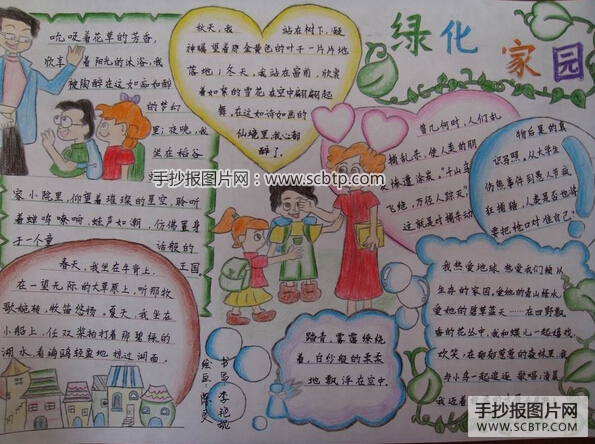 绿化家园
吮吸着花草的芳香,
欣享着阳光的沐浴,我
被陶醉在这如画如醉
的梦幻
里;夜晚,我
坐在稻谷
容小院里,仰望着璀璨的星空,聆听
着蝉鸣
蛙声如潮,仿佛置身
于一个童话般的
王国。
秋天,我站在树下,凝
神瞩望着
金黄色的叶子一片片地
落地;冬天,我站在窗前,欣赏
着如絮的雪花在空中翩翩起
舞,在这如诗如画的
仙境里,我心都
醉了。
曾几何时,人们乱
捕乱杀,使人类的朋
友惨遭
“千山鸟
飞绝,万径人踪灭”
这就是对捕杀动
物后果的真
识写照,从大学生
伤熊事件到愚人节疯
狂捕猫,人类是否也将
要把枪口对准自己?
春天,我坐在牛背上,
在一望无际的大草原上,听那牧
歌婉转,
悠扬。夏天,我坐在
小船上,任双桨拍打着那碧绿的
湖水,看海鸥轻盈地掠过湖面。
踏青,雾霭缭绕
着,白纱般的柔柔
地飘浮在空中,
我热爱地球,热爱我们赖以
生存的家园。爱她的青山绿水,
爱他的碧草蓝天……在四野飘
香的花丛中,我和蝶儿一起嬉戏
欢笑,在郁郁葱葱的森林里,我
与小鸟一起追逐
歌唱,清晨
我迎着
手抄报图片网:www.scbtp.com
手抄报图片网
WWW.SCBTP.COM